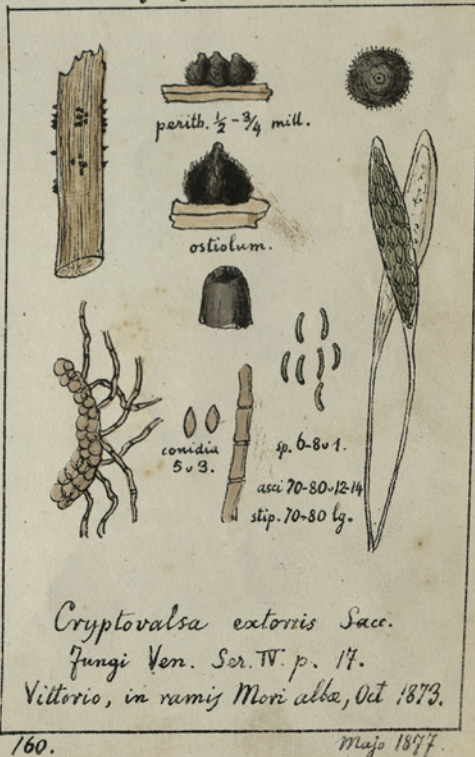 perith. ½ - ¾ mill.
ostiolum.
conidia
5 v 3.
sp. 6-8 v 1.
asci 70-80 v 12-14
stip. 70-80 lg.
Cryptovalsa extorris Sacc.
Fungi Ven. Ser. IV. p. 17.
Vittorio, in ramis Mori albæ, Oct 1873.
160.
Majo 1877.